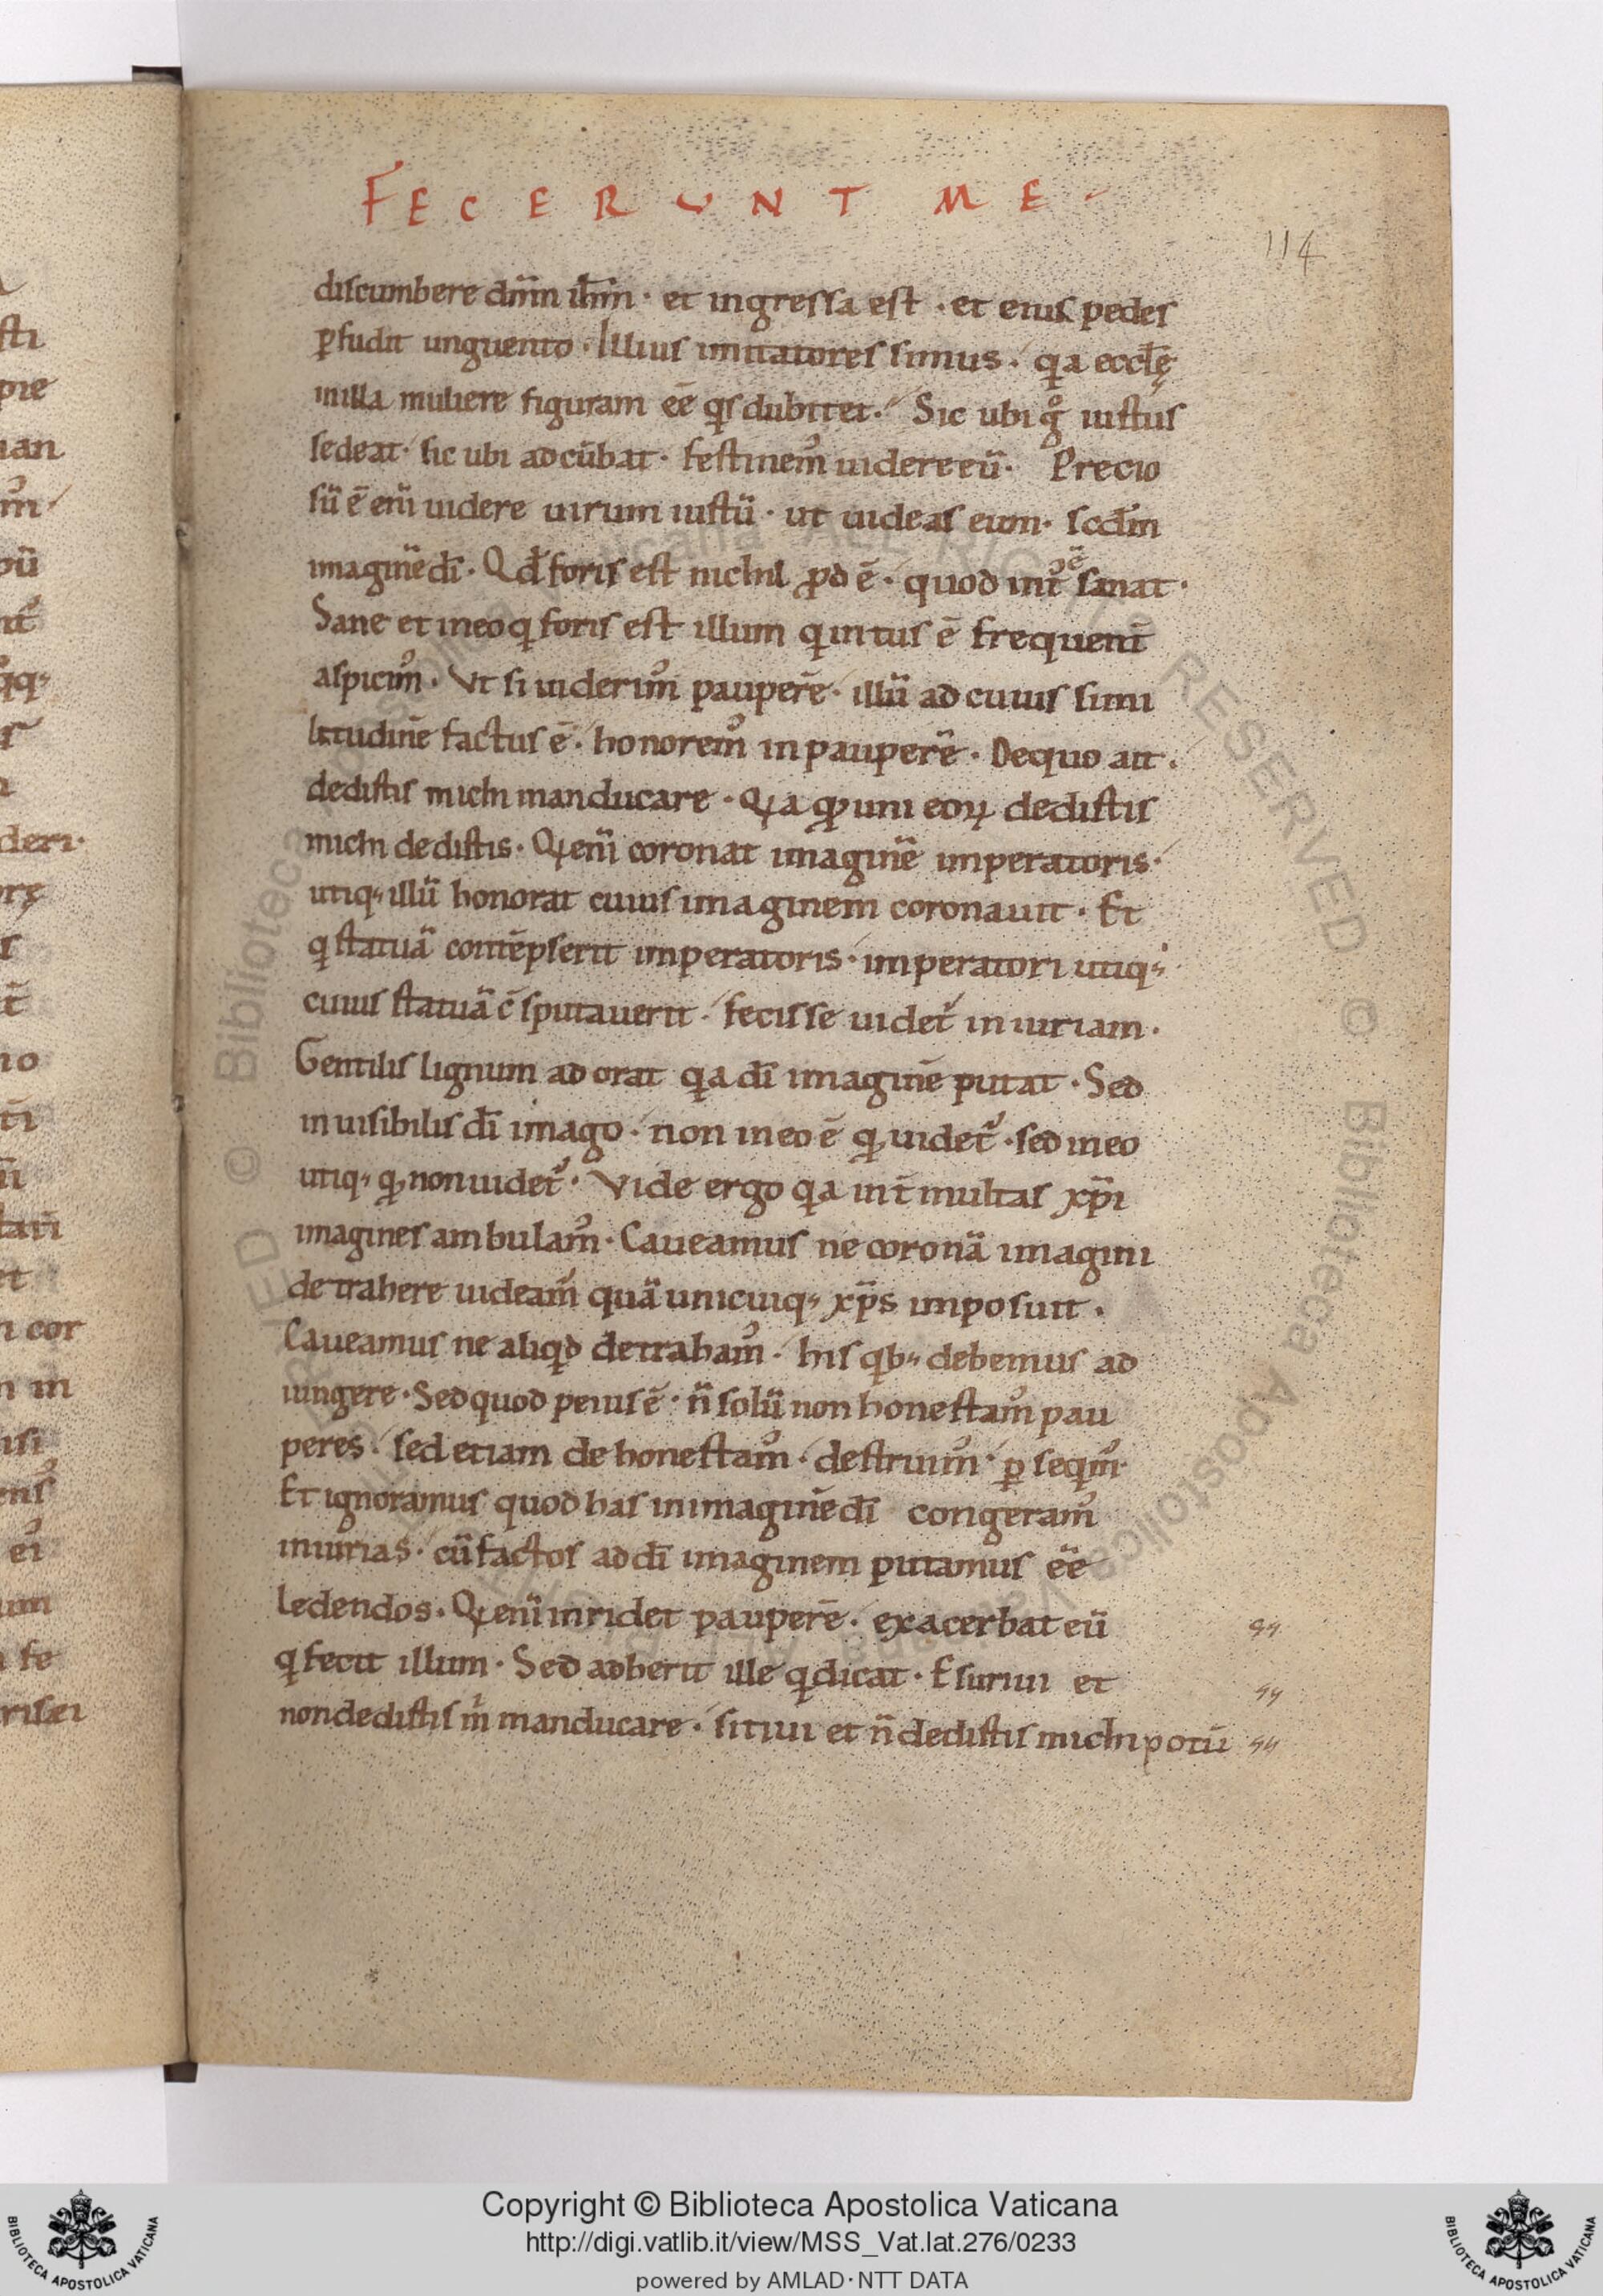 FECERUNT ME.
114
discumbere dn̄m ih̄m · et ingressa est · et eius pedes
ꝑfudit unguento · Illius imitatores simus · qa eccłę
in illa muliere figuram ēē qs dubitet · Sic ubi gͦ iustus
sedeat · sic ubi adcūbat · festinem᾽ uidere eū · Precio
sū ē eni᷑ uidere uirum iustū · ut uideas eum · scd̄m
imaginē dī · Qđ foris est nichil ꝓd ē · quod int᾽ ē sanat ·
Sane et in eo q foris est illum q intus ē frequent̄
aspicim᾽ · Vt si uiderim᾽ pauperē · illū ad cuius simi
litudinē factus ē · honorem᾽ in pauperē · De quo ait ·
dedistis michi manducare · Qa qđ uni eoꝝ dedistis
michi dedistis · Q enī coronat imaginē imperatoris ·
utiq; illū honorat cuius imaginem coronauit · Et
q statuā contēpserit imperatoris · imperatori utiq;
cuius statuā c̄sputauerit · fecisse uidet᾽ iniuriam ·
Gentilis lignum adorat qa dī imaginē putat · Sed
inuisibilis dī imago · non in eo ē qđ uidet᾽ · sed in eo
utiq; qđ non uidet᾽ · Vide ergo qa int̄ multas xp̄i
imagines ambulam᾽ · Caueamus ne coronā imagini
detrahere uideam᾽ quā unicuiq; xp̄s imposuit ·
Caueamus ne aliqd detraham᾽ · his qb; debemus ad
iungere · Sed quod peius ē · n̄ solū non honestam᾽ pau
peres · sed etiam dehonestam᾽ · destruim᾽ · ꝑseqm᾽ ·
Et ignoramus quod has in imaginē dī congeram᾽
iniurias · cū factos ad dī imaginem putamus ēē
ledendos · Q enī inridet pauperē · exacerbat eū
q fecit illum · Sed adherit ille q dicat · Esuriui et
non dedistis m̄ manducare · sitiui et n̄ dedistis michi potū
Copyright © Biblioteca Apostolica Vaticana
http://digi.vatlib.it/view/MSS_Vat.lat.276/0233
powered by AMLAD·NTT DATA
BIBLIOTECA APOSTOLICA VATICANA
BIBLIOTECA APOSTOLICA VATICANA